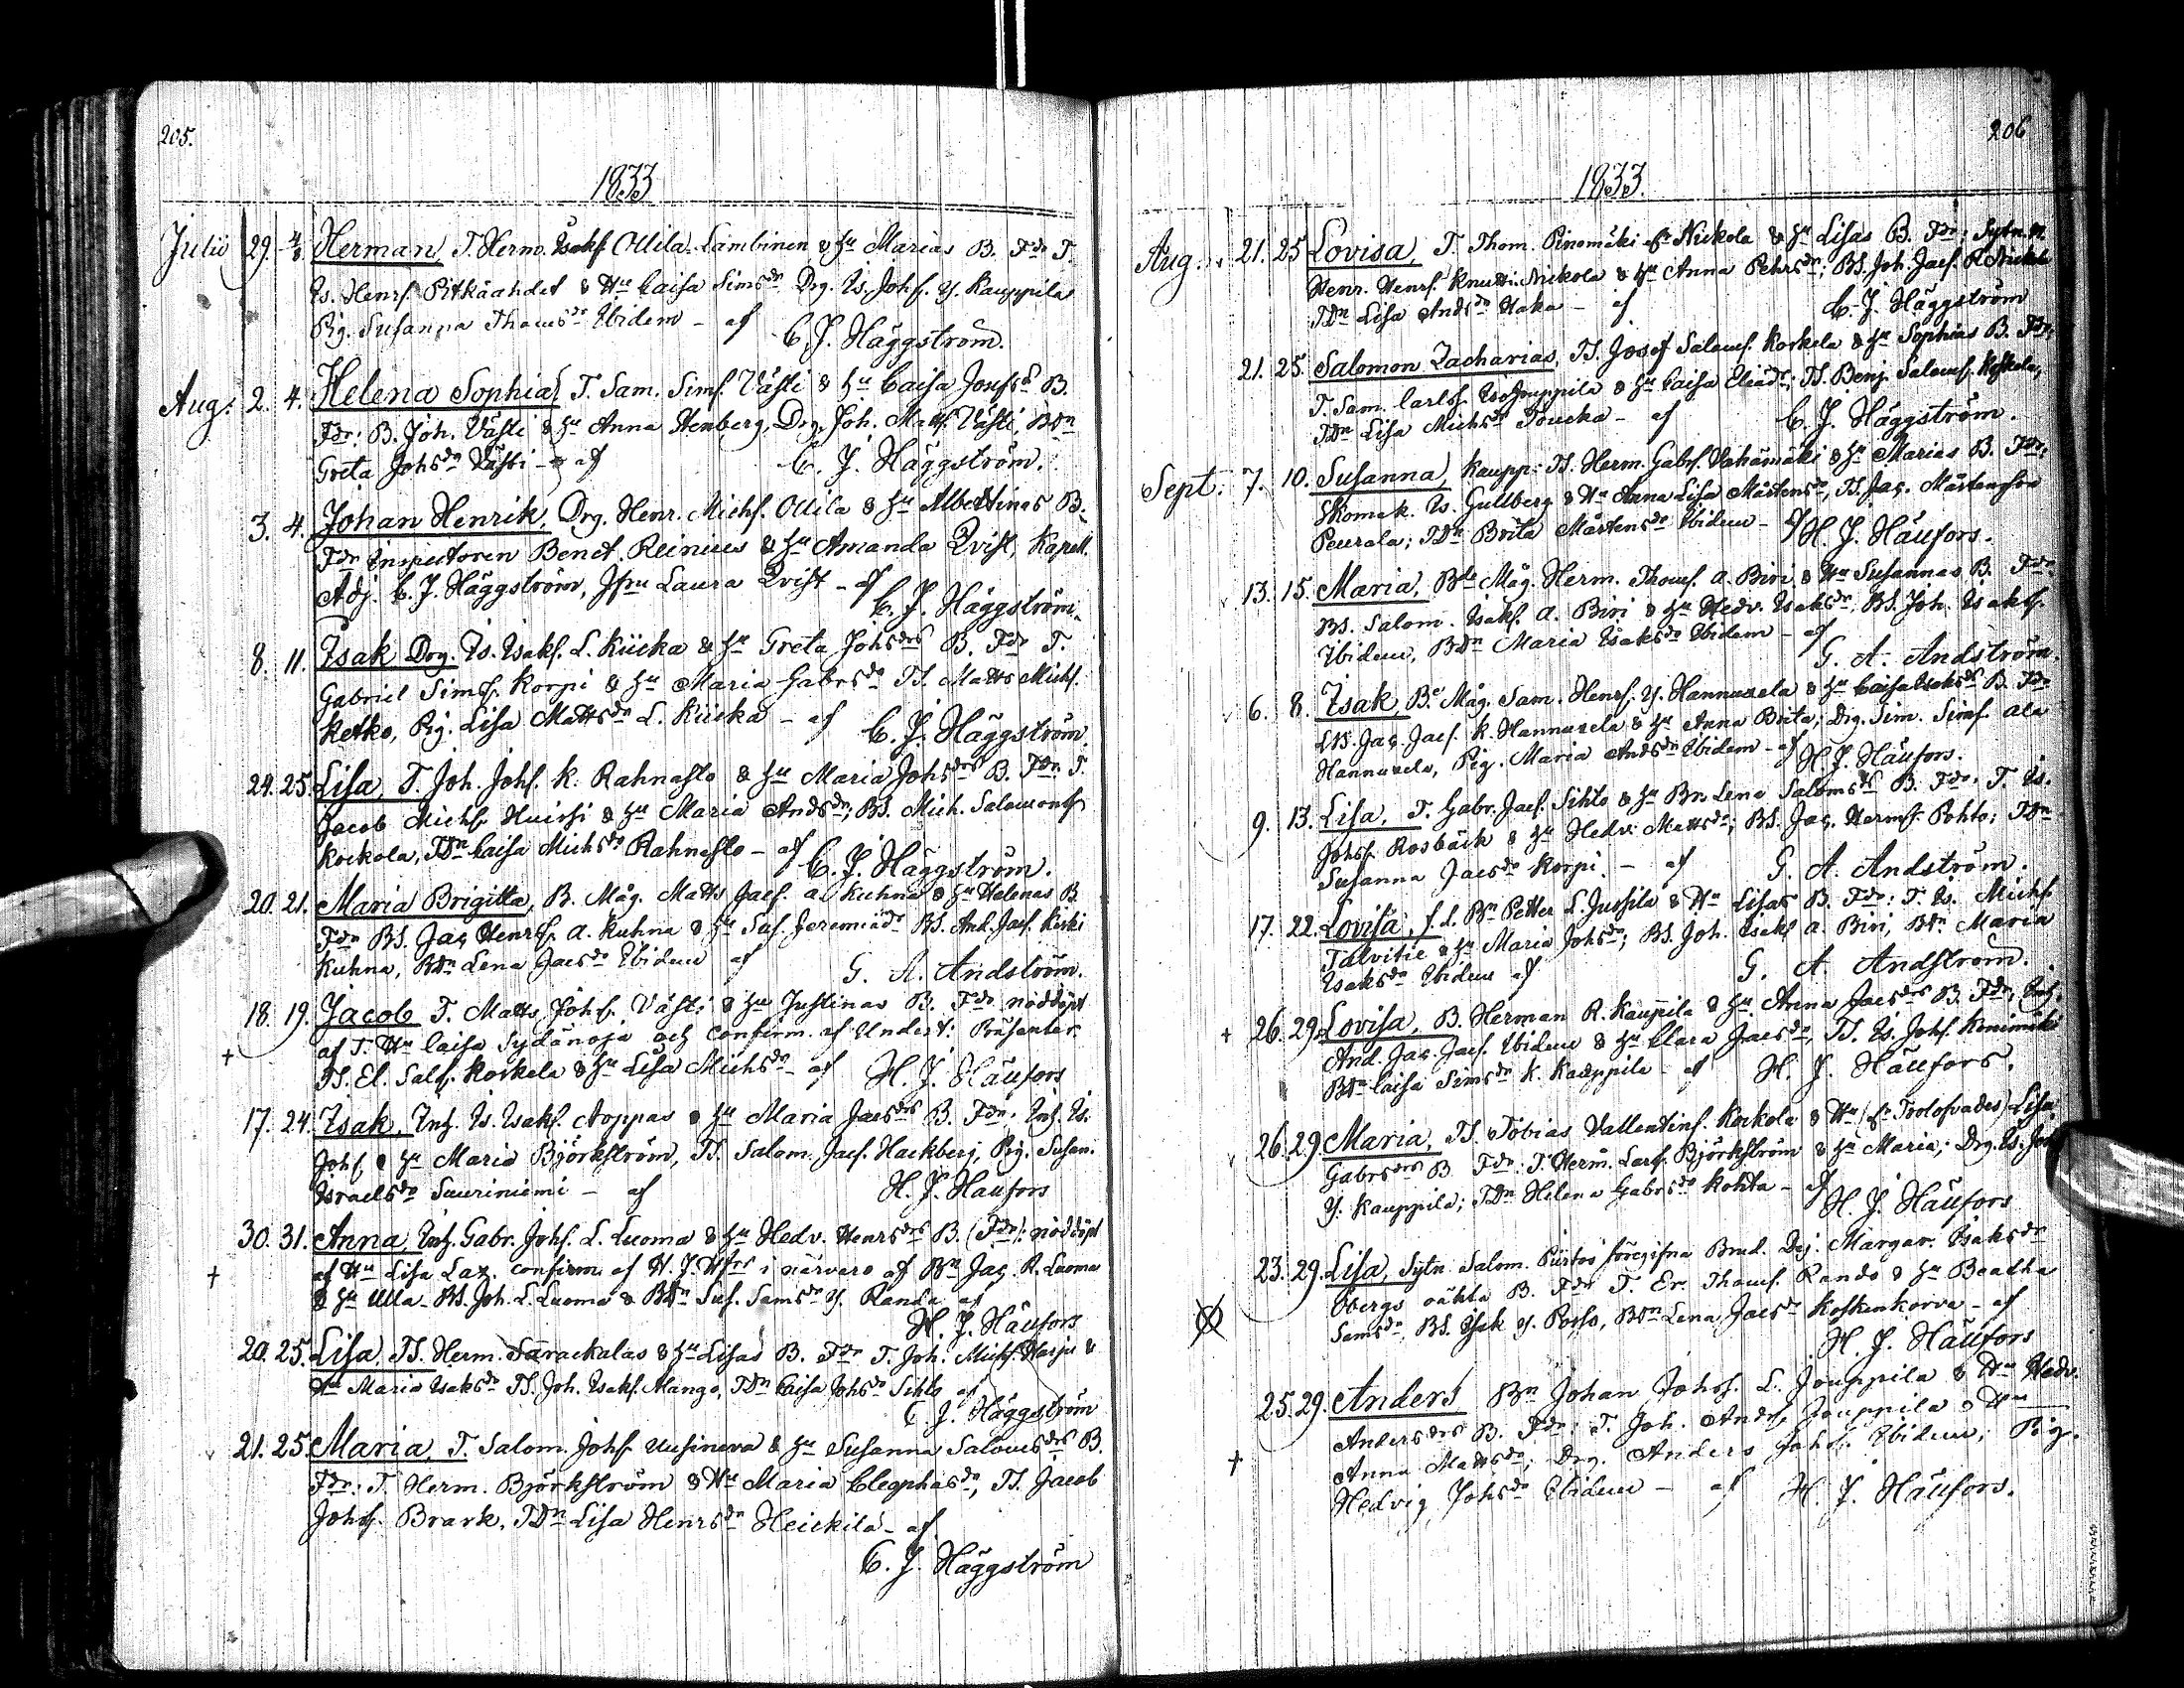 205.
1833
Julii 29. 4/8 Herman, T. Herm. Isaks. Ollila Lambinen & Hu Marias B. Fdr T.
Is. Henrs. Pitkäandet & Hu Caisa Simsdr Drg. Is. Johs. Y. Kauppila
Pig. Susanna Thomsdr Ibidem - af C. J. Häggström.
Aug. 2. 4. Helena Sophia, T. Sam. Sims. Västi & Hu Caisa Josefsd B.
Fdr: B. Joh. Västi & Hu Anna Henberg, Drg. Joh. Matts. Västi, BDn
Greta Johsdr Västi - af C. J. Häggström.
3. 4. Johan Henrik, Drg. Henr. Michs. Ollila & Hu Albertinas B.
Fdr Inspectoren Benct Reinius & Hu Amanda Qvist, Kapell.
Adj. C. J. Häggström, Jfru Laura Qvist - af C. J. Häggström.
8. 11. Isak Drg. Is. Isaks. L. Kiicka & Hu Greta Johsdrs B. Fdr T.
Gabriel Simss. Korpi & Hu Maria Gabrsdr TS. Matts Michs.
Ketko, Pig. Lisa Mattsdr L. Kiicka - af C. J. Häggström.
24. 25. Lisa, T. Joh. Johs. K. Rahnasto & Hu Maria Johsdrs B. Fdr: T.
Jacob Michs. Huissi & Hu Maria Andsdr; BS. Mich. Salomons.
Kockola, TDn Caisa Michsdr Rahnasto - af C. J. Häggström.
20. 21. Maria Brigitta, B. Måg. Matts Jacs. a. Kuhna & Hu Helenas B.
Fdr BS. Jac Henrss. a. Kuhna & Hu Sus. Jeremiædr BS. And. Jacs. Keski
Kuhna, BDn Lena Jacsdr Ibidem af G. A. Andström.
18. 19. Jacob T. Matts Johs. Västi & Hu Justinas B. Fdr nöddöpt
af T. Hu Caisa Sydänoja och confirm. af Undert: Präsenter.
† TS. El. Sals. Korkela & Hu Lisa Michsdr - af H. J. Häufors
17. 24. Isak, Inh. Is. Isaks. Aoppas & Hu Maria Jacsdrs B. Fdr: Inh. Is.
Johs. & Hu Maria Björkström, TS. Salom. Jacs. Hackberg, Pig. Susan.
Israelsdr Sauriniemi - af H. J. Häufors
30. 31. Anna, Inh. Gabr. Johs. L. Luoma & Hu Hedv. Henrsdrs B. (Fdr): nöddöpt
† af Hu Lisa Laz. confirm. af H. J. Hfrs i närvaro af Bn Jac. R. Luoma
& Hu Ulla - BS. Joh. L. Luoma & BDn Sus. Samsdr Y. Randa af
H. J. Häufors
20. 25. Lisa, TS. Herm. Sarackalas & Hu Lisas B. Fdr T. Joh. Michs. Harju &
Hu Maria Isaksdr TS. Joh. Isaks. Alango, TDn Caisa Johsdr Sihto af
C. J. Häggström
21. 25. Maria, T. Salom. Johs. Uusineva & Hu Susanna Salomsdrs B.
Fdr: T. Herm. Björkström & Hu Maria Cleophasdr, TS. Jacob
Johss. Brark, TDn Lisa Henrsdr Heickilä - af
C. J. Häggström
206
1833.
Aug. 21. 25 Lovisa, T. Thom. Pinomäki fr Nickola & Hu Lisas B. Fdr: Sytn.
Henr. Henrs. Knutti Nickola & Hu Anna Pehrsdr; BS. Joh. Jacs. R. Nickola
TDn Lisa Andsdr Haka - af C. J. Häggström
21. 25. Salomon Zacharias, TS. Josef Saloms. Korkela & Hu Sophias B. Fdr:
T. Sam. Carlss. Iso Jouppila & Hu Caisa Eliædr; TS. Benj. Saloms. Korkela,
TDn Lisa Michsdr Poucka - af C. J. Häggström.
Sept. 7. 10. Susanna, Kaupp. TS. Herm. Gabrs. Vahämäki & Hu Marias B. Fdr:
Skomak. Is. Gullberg & Hu Anna Lisa Mårtensdr, TS. Jac. Mårtensson
Peurala; TDn Brita Mårtensdr Ibidem - af H. J. Häufors.
13. 15. Maria, Bde Måg. Herm. Thoms. a. Biri & Hu Susannas B. Fdr:
BS. Salom. Isaks. a. Biri & Hu Hedv. Isaksdr, BS. Joh. Isakss.
Ibidem, BDn Maria Isaksdr Ibidem - af
G. A. Andström.
6. 8. Isak, Be Måg. Sam. Henrs. Y. Hannuxela & Hu Caisa Isaksds B. Fdr
LN. Jac. Jacs. K. Hannuxela & Hu Anna Brita; Drg. Sim. Sims. Ala
Hannuxela, Pig. Maria Andsdr Ibidem - af H. J. Häufors.
9. 13. Lisa, T. Gabr. Jacs. Sihto & Hu Br. Lena Salomsds B. Fdr: T. Is.
Johss. Rosbäck & Hu Hedv. Mattsdr; BS. Jac. Herms. Pohto; TDn
Susanna Jacsdr Korpi. - af G. A. Andström.
17. 22. Lovisa, f.d. Bn Petter L. Jussila & Hu Lisas B. Fdr: T. Is. Michs.
Talvitie & Hu Maria Johsdr; BS. Joh. Isaks. a. Biri, BDn Maria
Isaksdr Ibidem af G. A. Andström.
† 26. 29. Lovisa, B. Herman R. Kauppila & Hu Anna Jacsdrs B. Fdr: Inh.
And. Jac. Jacs. Ibidem & Hu Clara Jacsdr, TS. Is. Johs. Kenimäki
BDn Caisa Simsdr K. Kauppila - af H. J. Häufors.
26. 29. Maria, TS. Tobias Vallentins. Kockola & Hu (fr Trolofvades) Lisa
Gabrsdrs B. Fdr: T. Herm. Carls. Björkström & Hu Maria; Drg. Is. Johs
Y. Kauppila; TDn Helena Gabrsdr Kohta - af
H. J. Häufors
23. 29. Lisa, Sytn. Salom. Piirtos föregifna Brud. Dej. Margar. Isaksdr
Öbergs oäkta B. Fdr T. Er. Thoms. Rando & Hu Beatha
Samsdr, BS. Isak Y. Porso, BDn Lena Jacsdr Koskenkorva - af
H. J. Häufors
25. 29. Anders Bn Johan Johss. L. Jouppila & Hu Hedv.
Andersdrs B. Fdr: T. Joh. Ands. Jouppila & Hu
† Anna Mattsdr; Drg. Anders Johs. Ibidem; Pig.
Hedvig Johsdr Ibidem - af H. J. Häufors.